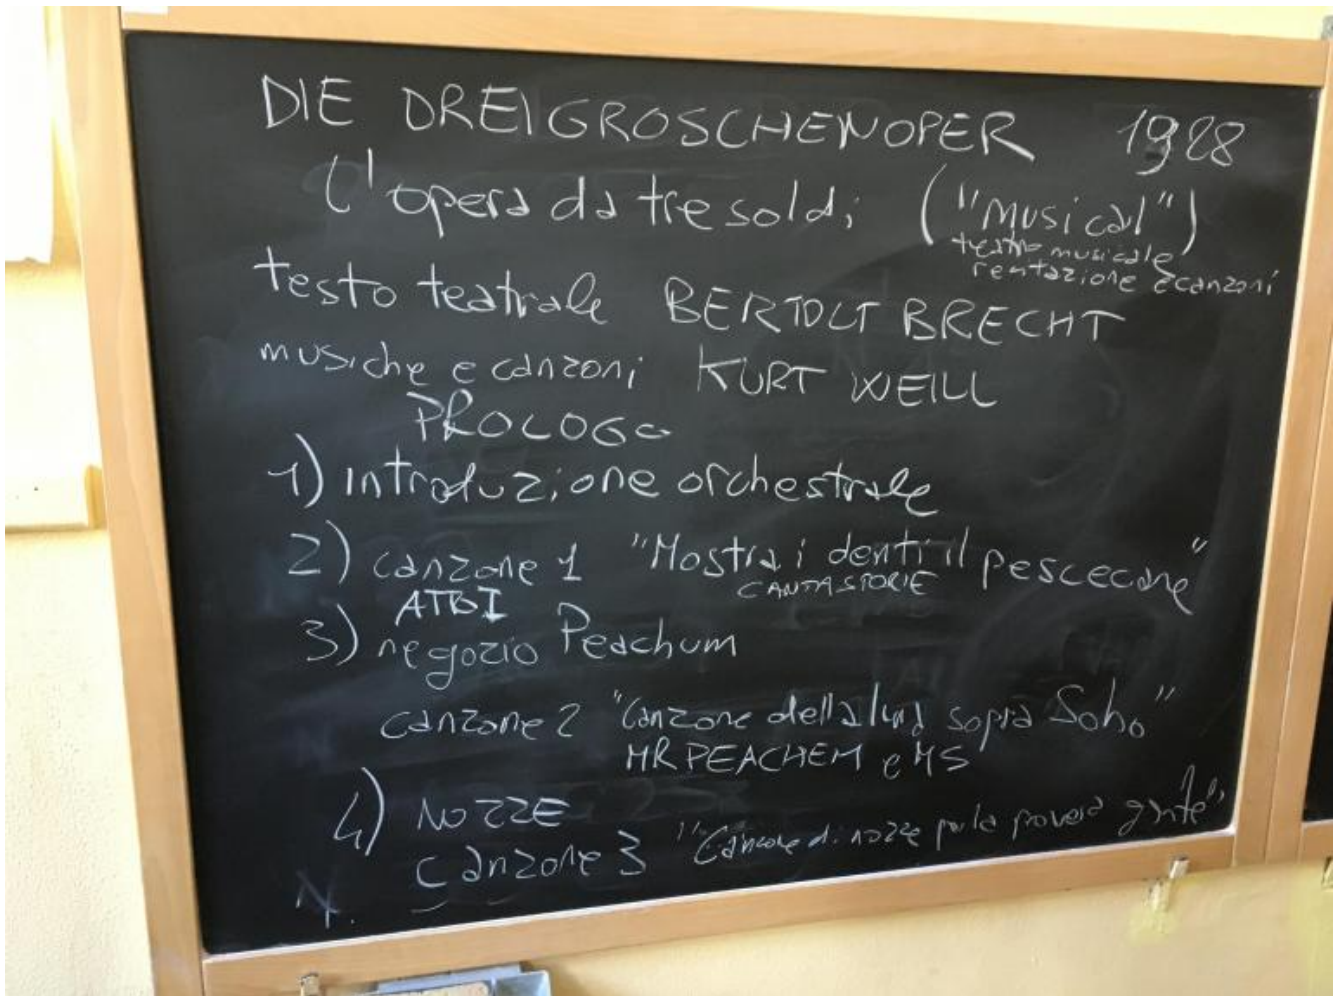 DIE DREIGROSCHENOPER 1928
L'opera da tre soldi ("Musical")
teatro musicale
recitazione e canzoni
testo teatrale BERTOLT BRECHT
musiche e canzoni KURT WEILL
PROLOGO
1) introduzione orchestrale
2) canzone 1 "Mostra i denti il pescecane"
CANTASTORIE
ATTO I
3) negozio Peachum
canzone 2 "Canzone della luna sopra Soho"
MR PEACHEM e MS
4) NOZZE
canzone 3 "Canzone di nozze per la povera gente"